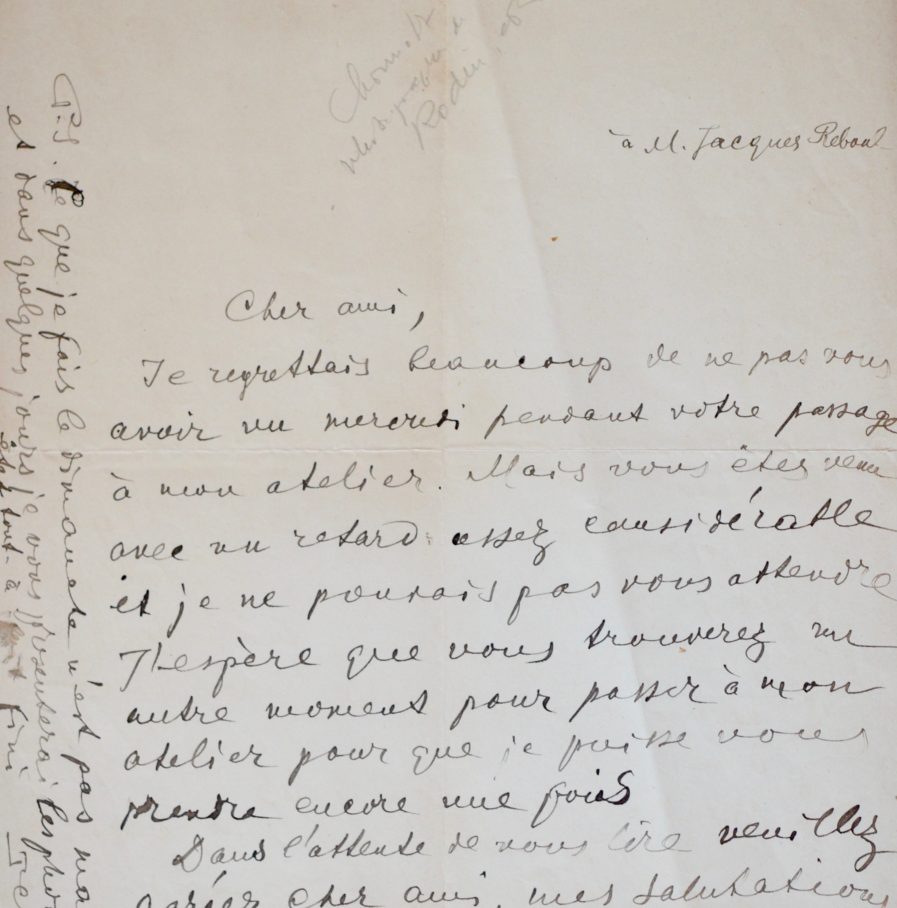 Rodin
à M. Jacques Reboul
Cher ami,
Je regrettais beaucoup de ne pas vous
avoir vu mercredi pendant votre passage
à mon atelier. Mais vous êtes venu
avec un retard assez considérable
et je ne pouvais pas vous attendre
J'espère que vous trouverez un
autre moment pour passer à mon
atelier pour que je puisse vous
prendre encore une fois
Dans l'attente de vous lire veuillez
agréer cher ami, mes salutations
P.S. Ce que je fais le dimanche n'est pas ma
et dans quelques jours je vous présenterai les phot
est tout-à fait fini Je